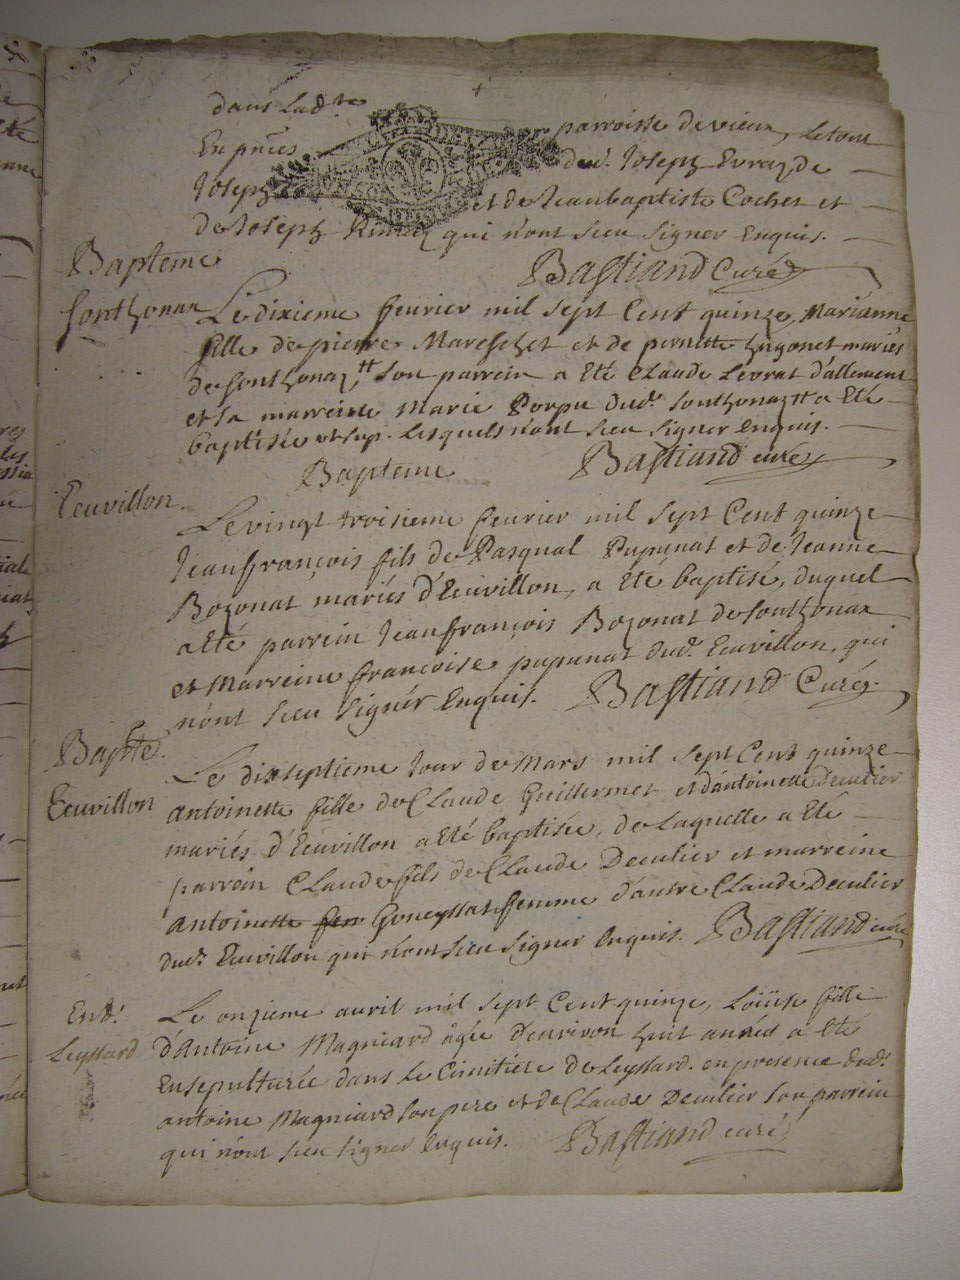 dans lad.te parroisse de vieux, le tout
En pñces dud. Joseph Evray, de
Joseph et de Jeanbaptiste Cochet et
de Joseph qui n'ont sceu signer enquis.
Bapteme
BASTIAND Curé
Sonthonax Le dixieme fevrier mil sept Cent quinze, Marianne
fille de pierre Mareschet et de pernette hugonet mariés
de Sonthonaz, son parrein a eté Claude Levrat d'allement
et sa marreine Marie Porpu dud. Sonthonaz a Eté
baptisée et sup. lesquels n'ont sceu signer enquis.
Bapteme BASTIAND curé
Ecuvillon.
Le vingt troisieme fevrier mil sept Cent quinze
Jeanfrançois fils de Pasqual Pupunat et de Jeanne
Bozonat mariés d'Ecuvillon, a Eté baptisé, duquel
a Eté parrein Jeanfrançois Bozonat de Sonthonax
et Marreine françoise pupunat dud. Ecuvillon, qui
n'ont sceu signér Enquis. BASTIAND Curé.
Bapte.
Le dixseptieme Jour de Mars mil sept Cent quinze
Ecuvillon antoinette fille de Claude Guillermet et d'antoinette Deculier
mariés d'Ecuvillon a eté baptisée, de laquelle a Eté
parrein Claude fils de Claude Deculier et marreine
antoinette fem Goneyssat femme d'autre Claude Deculier
dud. Ecuvillon qui n'ont sceu signer enquis. BASTIAND curé
Ent.
Le onzieme avril mil sept Cent quinze, Loüise fille
Leyssard d'Antoine Magniard âgée d'environ huit années a eté
Ensepulturée dans le Cimitiére de Leyssard. en presence dud.
antoine Magniard son pere et de Claude Deculier son parrein
qui n'ont sceu signer enquis. BASTIAND curé